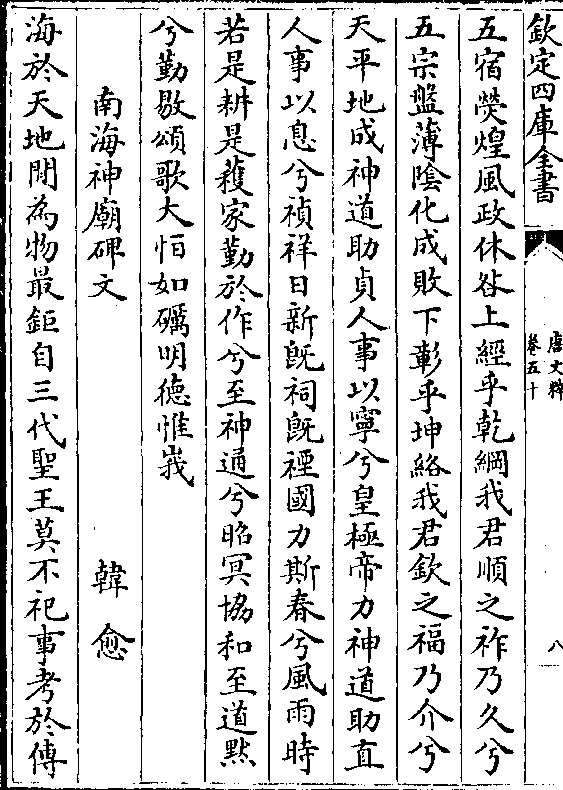 欽定四庫全書
唐文粹
卷五十
八
五宿熒煌風政休咎上經乎乾綱我君順之祚乃久兮
五宗盤薄陰化成敗下彰乎坤絡我君欽之福乃介兮
天平地成神道助貞人事以寧兮皇極帝力神道助直
人事以息兮禎祥日新既祠既禋國力斯春兮風雨時
若是耕是穫家勤於作兮至神通兮昭冥協和至道黙
兮勤敭頌歌大恒如礪明德惟峩
南海神廟碑文 韓愈
海於天地間為物最鉅自三代聖王莫不祀事考於傳